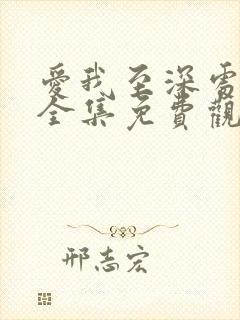 愛我至深電
全集免費觀
邢志宏